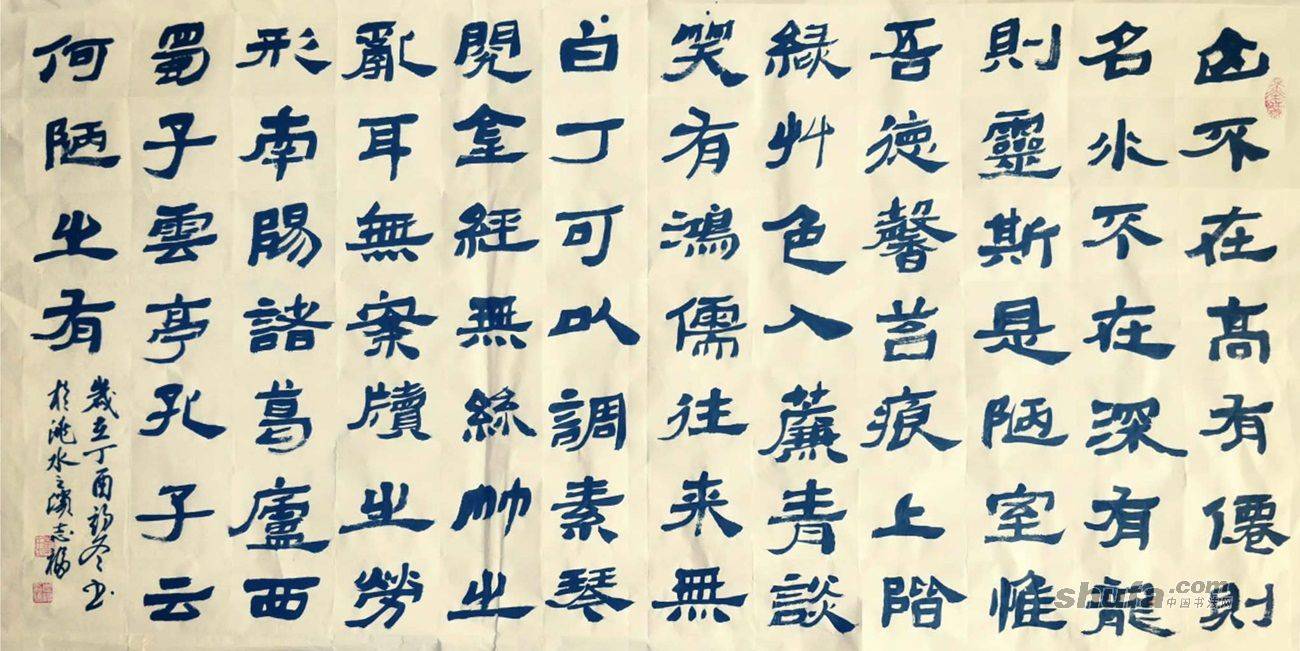 山不在高有僊則
名水不在深有龍
則靈斯是陋室惟
吾德馨苔痕上階
緑艸色入薕青談
笑有鴻儒往来無
白丁可以調素琴
閲金經無絲竹之
亂耳無案牘之勞
形南陽諸葛廬西
蜀子雲亭孔子云
何陋之有
歲在丁酉初冬书
於洮水之濱志
shufa.com
中国书法网